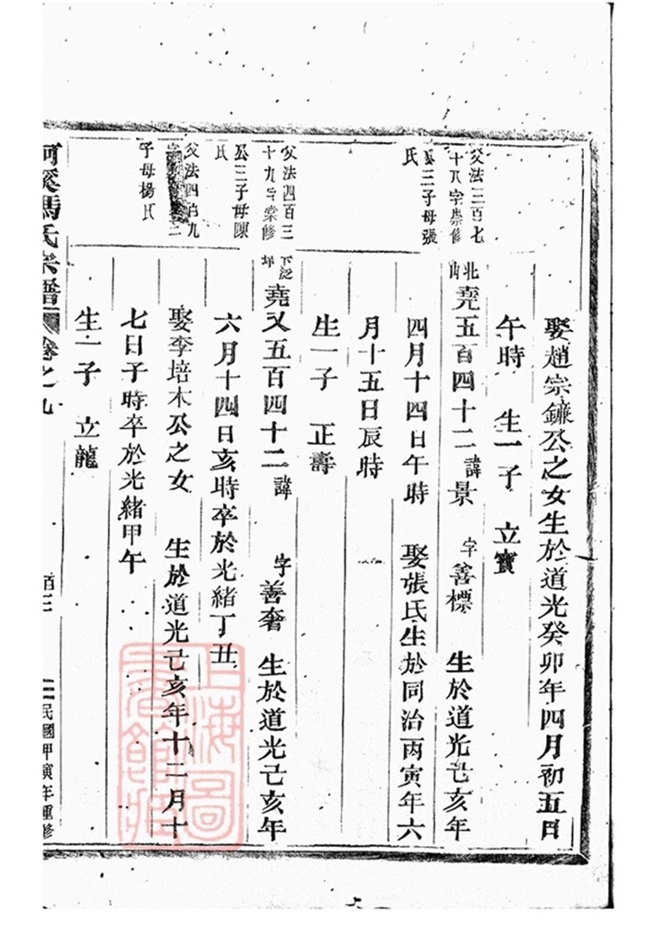 父法三百七
十五字崇修
公三子母張
氏
北山
娶趙宗鐮公之女生於道光癸卯年四月初五日
午時 生一子 立寶
堯五百四十二諱景 字善標 生於道光己亥年
四月十四日午時 娶張氏生於同治丙寅年六
月十五日辰時
生一子 正壽
父法四百三
十九字崇修
公三子母陳
氏
下泛
堯又五百四十二諱 字善奢 生於道光己亥年
六月十四日亥時卒於光緒丁丑
父法四百九
子母楊氏
娶李培木公之女 生於道光己亥年十二月十
七日子時卒於光緒甲午
生一子 立龍
馮氏宗譜 卷之九
民國甲寅年重修
上海圖書館藏